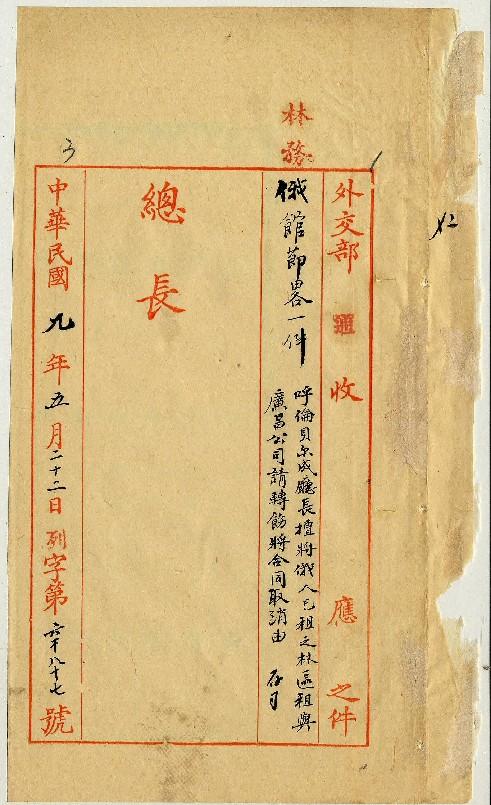 林務
外交部 收 應 之件
俄館節畧一件
呼倫貝尔成廳長擅將俄人已租之林區租與
廣昌公司請轉飭將合同取消由
總長
中華民國 九 年 五 月 二十二 日 列 字第 六千八十七 號